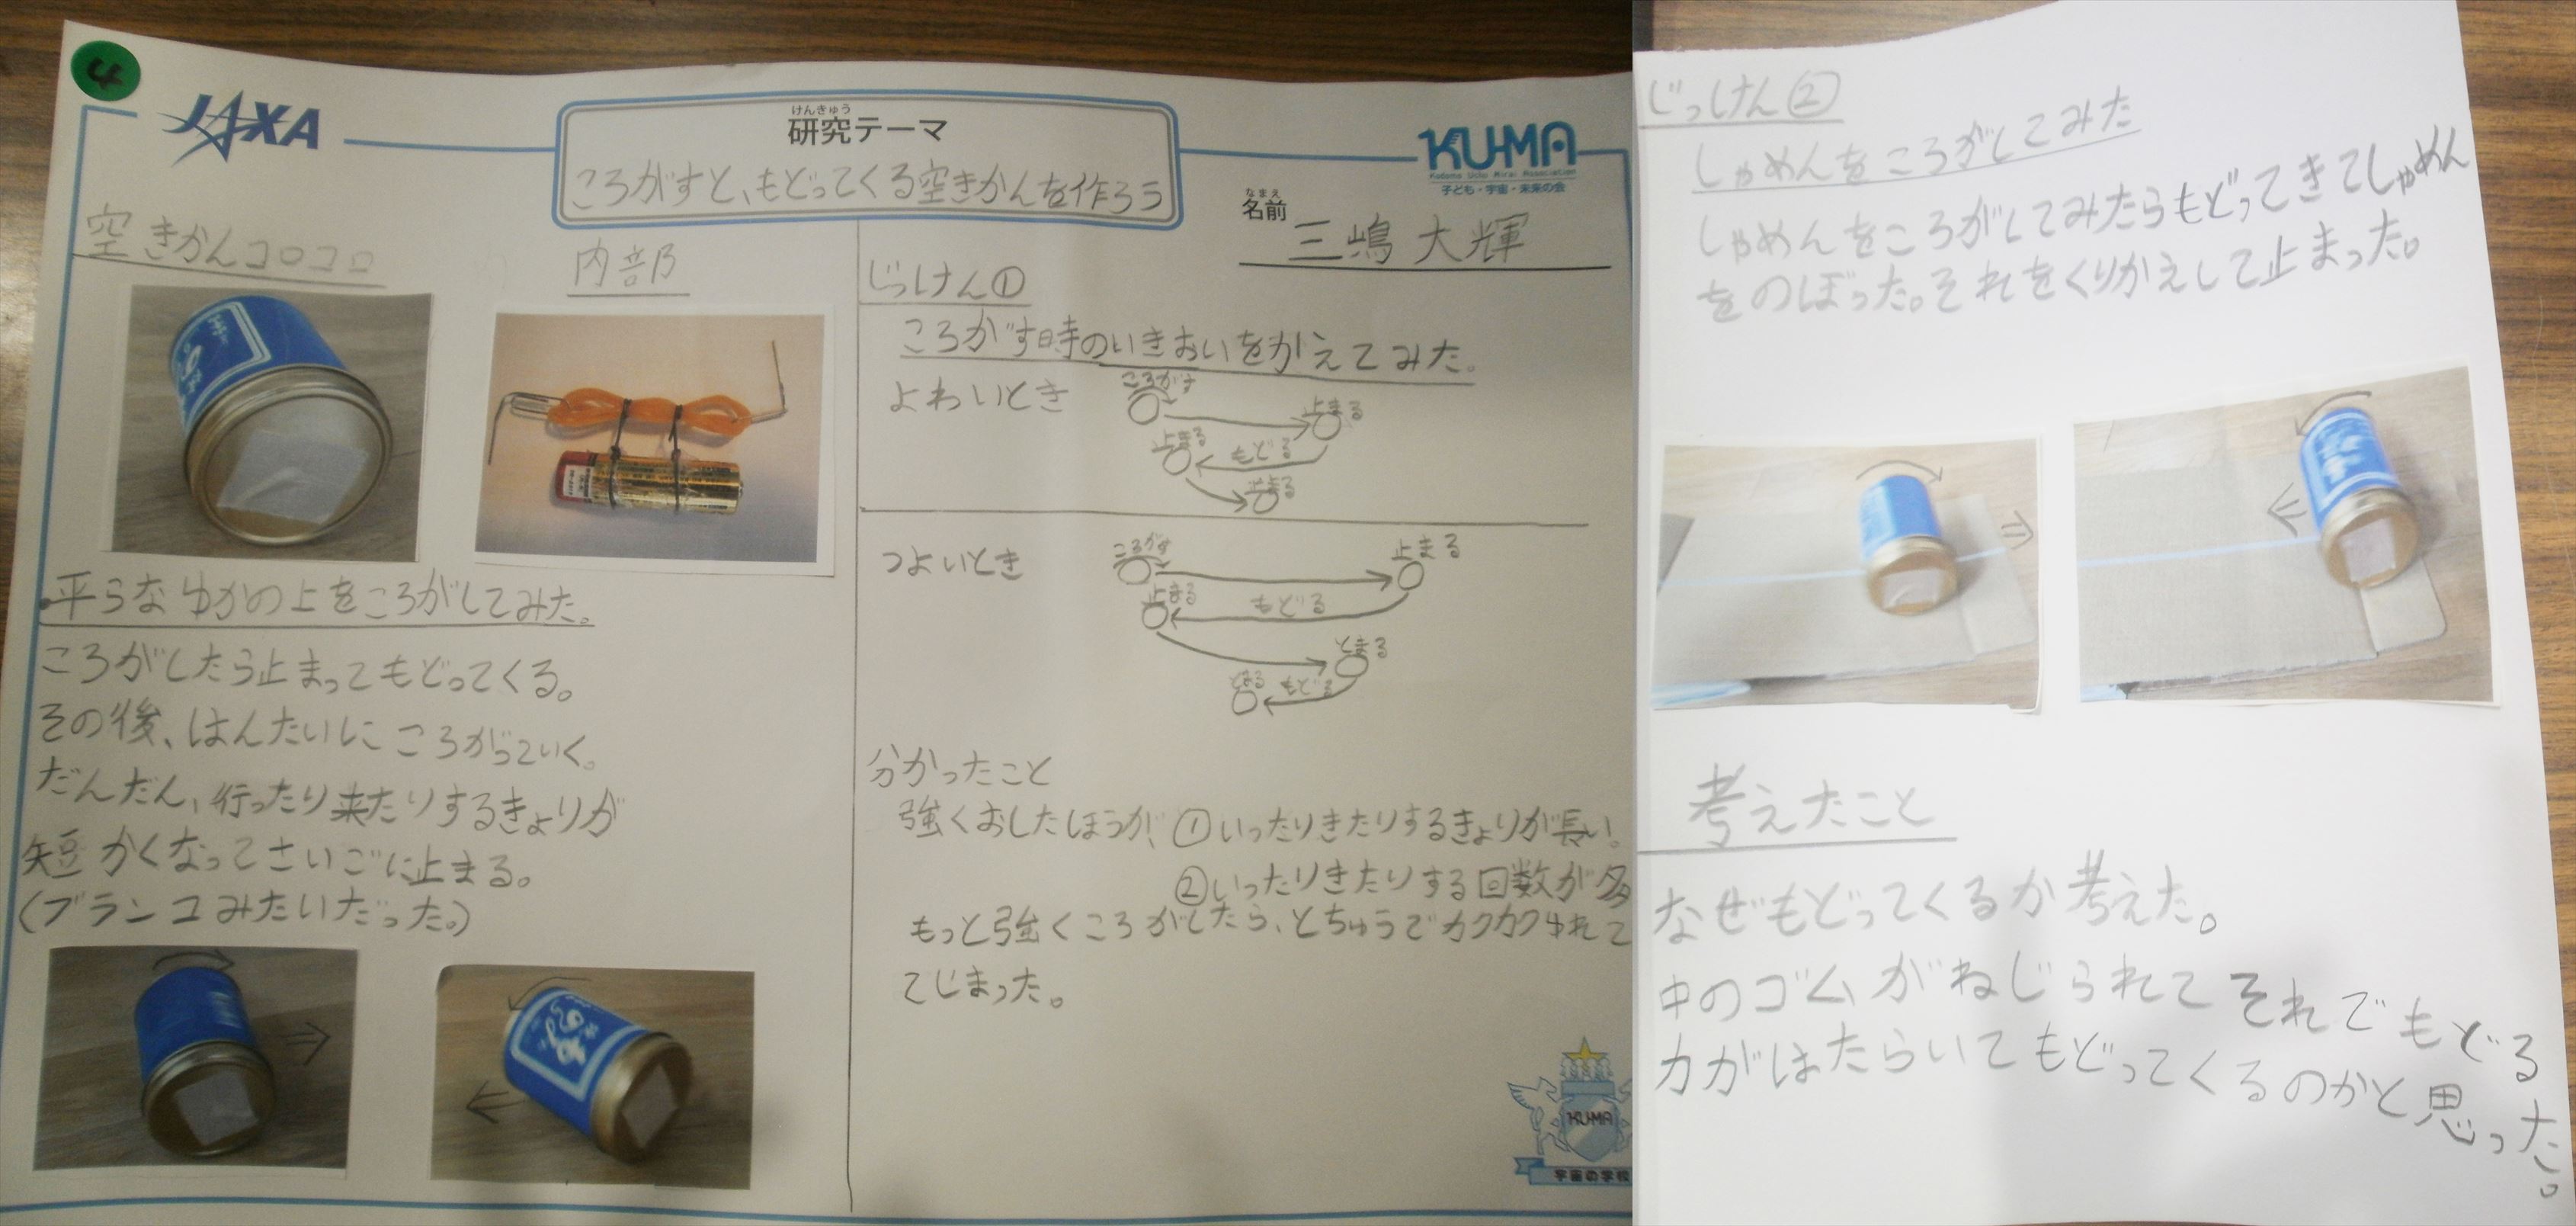 4
JAXA
けんきゅう
研究テーマ
ころがすと、もどってくる空きかんを作ろう
KU-MA
Kodomo Uchu Mirai Association
子ども・宇宙・未来の会
なまえ
名前
三嶋 大輝
空きかんコロコロ
内部
・平らなゆかの上をころがしてみた。
ころがしたら止まってもどってくる。
その後、はんたいにころがっていく。
だんだん、行ったり来たりするきょりが
短かくなってさいごに止まる。
(ブランコみたいだった。)
じっけん①
ころがす時のいきおいをかえてみた。
よわいとき
ころがす
止まる
もどる
止まる
止まる
つよいとき
ころがす
止まる
もどる
止まる
とまる
もどる
とまる
分かったこと
強くおしたほうが、①いったりきたりするきょりが長い。
②いったりきたりする回数が多
もっと強くころがしたら、とちゅうでカクカクゆれて
てじまった。
KU-MA
宇宙の学校
じっけん②
しゃめんをころがしてみた
しゃめんをころがしてみたらもどってきてしゃめん
をのぼった。それをくりかえして止まった。
考えたこと
なぜもどってくるか考えた。
中のゴムがねじられてそれでもどる
力がはたらいてもどってくるのかと思った。